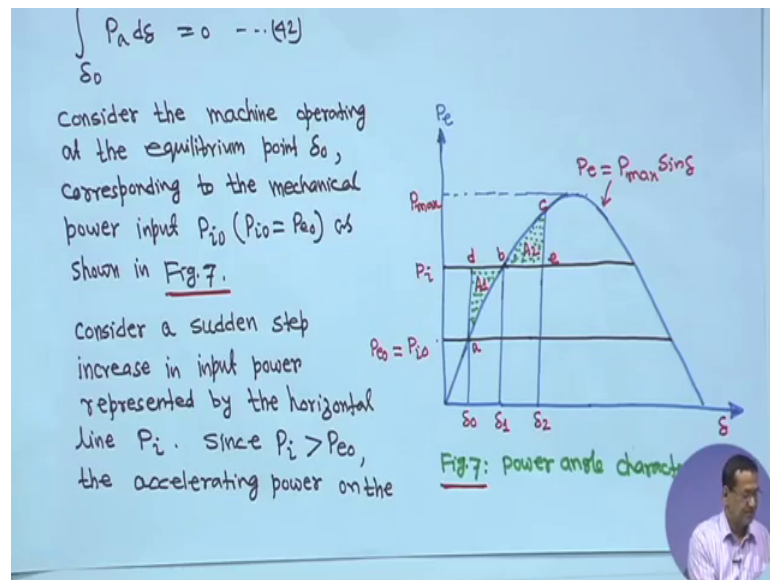 ∫ Pa dδ = 0 --- (42)
δ0
Consider the machine operating
at the equilibrium point δ0,
corresponding to the mechanical
power input Pi0 (Pi0 = Pe0) as
shown in Fig.7.
Consider a sudden step
increase in input power
represented by the horizontal
line Pi. Since Pi > Pe0,
the accelerating power on the
Pe
Pe = Pmax Sinδ
Pmax
c
d b A2 e
Pi
A1
Pe0 = Pi0
a
δ0 δ1 δ2 δ
Fig.7: Power angle charact